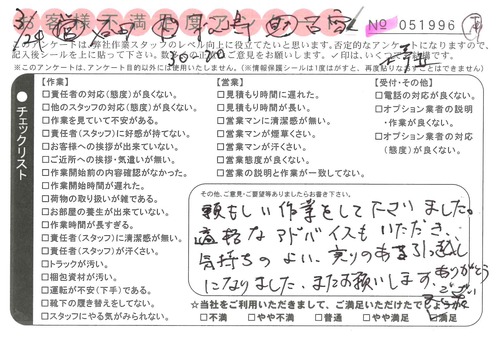 お客様不満足度アンケート
No 051996
このアンケートは、弊社作業スタッフのレベル向上に役立てたいと思います。否定的なアンケートになりますので、
記入後シールを上に貼って下さい。
※このアンケートは、アンケート目的以外には使用いたしません。(※情報保護シールは1度はがすと、再度貼りなおすことはできません)
チェックリスト
【作業】
□責任者の対応(態度)が良くない。
□他のスタッフの対応(態度)が良くない。
□作業を見ていて不安がある。
□責任者(スタッフ)に好感が持てない。
□お客様への挨拶が出来ていない。
□ご近所への挨拶・気遣いが無い。
□作業開始前の内容確認がなかった。
□作業開始時間が遅れた。
□荷物の取り扱いが雑である。
□お部屋の養生が出来ていない。
□作業時間が長すぎる。
□責任者(スタッフ)に清潔感が無い。
□責任者(スタッフ)が汗くさい。
□トラックが汚い。
□梱包資材が汚い。
□運転が不安(下手)である。
□靴下の履き替えをしてない。
□スタッフにやる気がみられない。
【営業】
□見積もり時間に遅れた。
□見積もり時間が長い。
□営業マンに清潔感が無い。
□営業マンが煙草くさい。
□営業マンが汗くさい。
□営業態度が良くない。
□営業の説明と作業が一致してない。
【受付・その他】
□電話の対応が良くない。
□オプション業者の説明
・作業が良くない。
□オプション業者の対応
(態度)が良くない。
その他、ご意見・ご要望等ありましたらお書き下さい。
頼もしい作業をして下さいました。
適格なアドバイスもいただき、
気持ちのよい、実りのある引っ越し
になりました。またお願いします。ありがとう
ござい
☆当社をご利用いただきまして、ご満足いただけたで
□不満 □やや不満 □普通 □やや満足 □満足